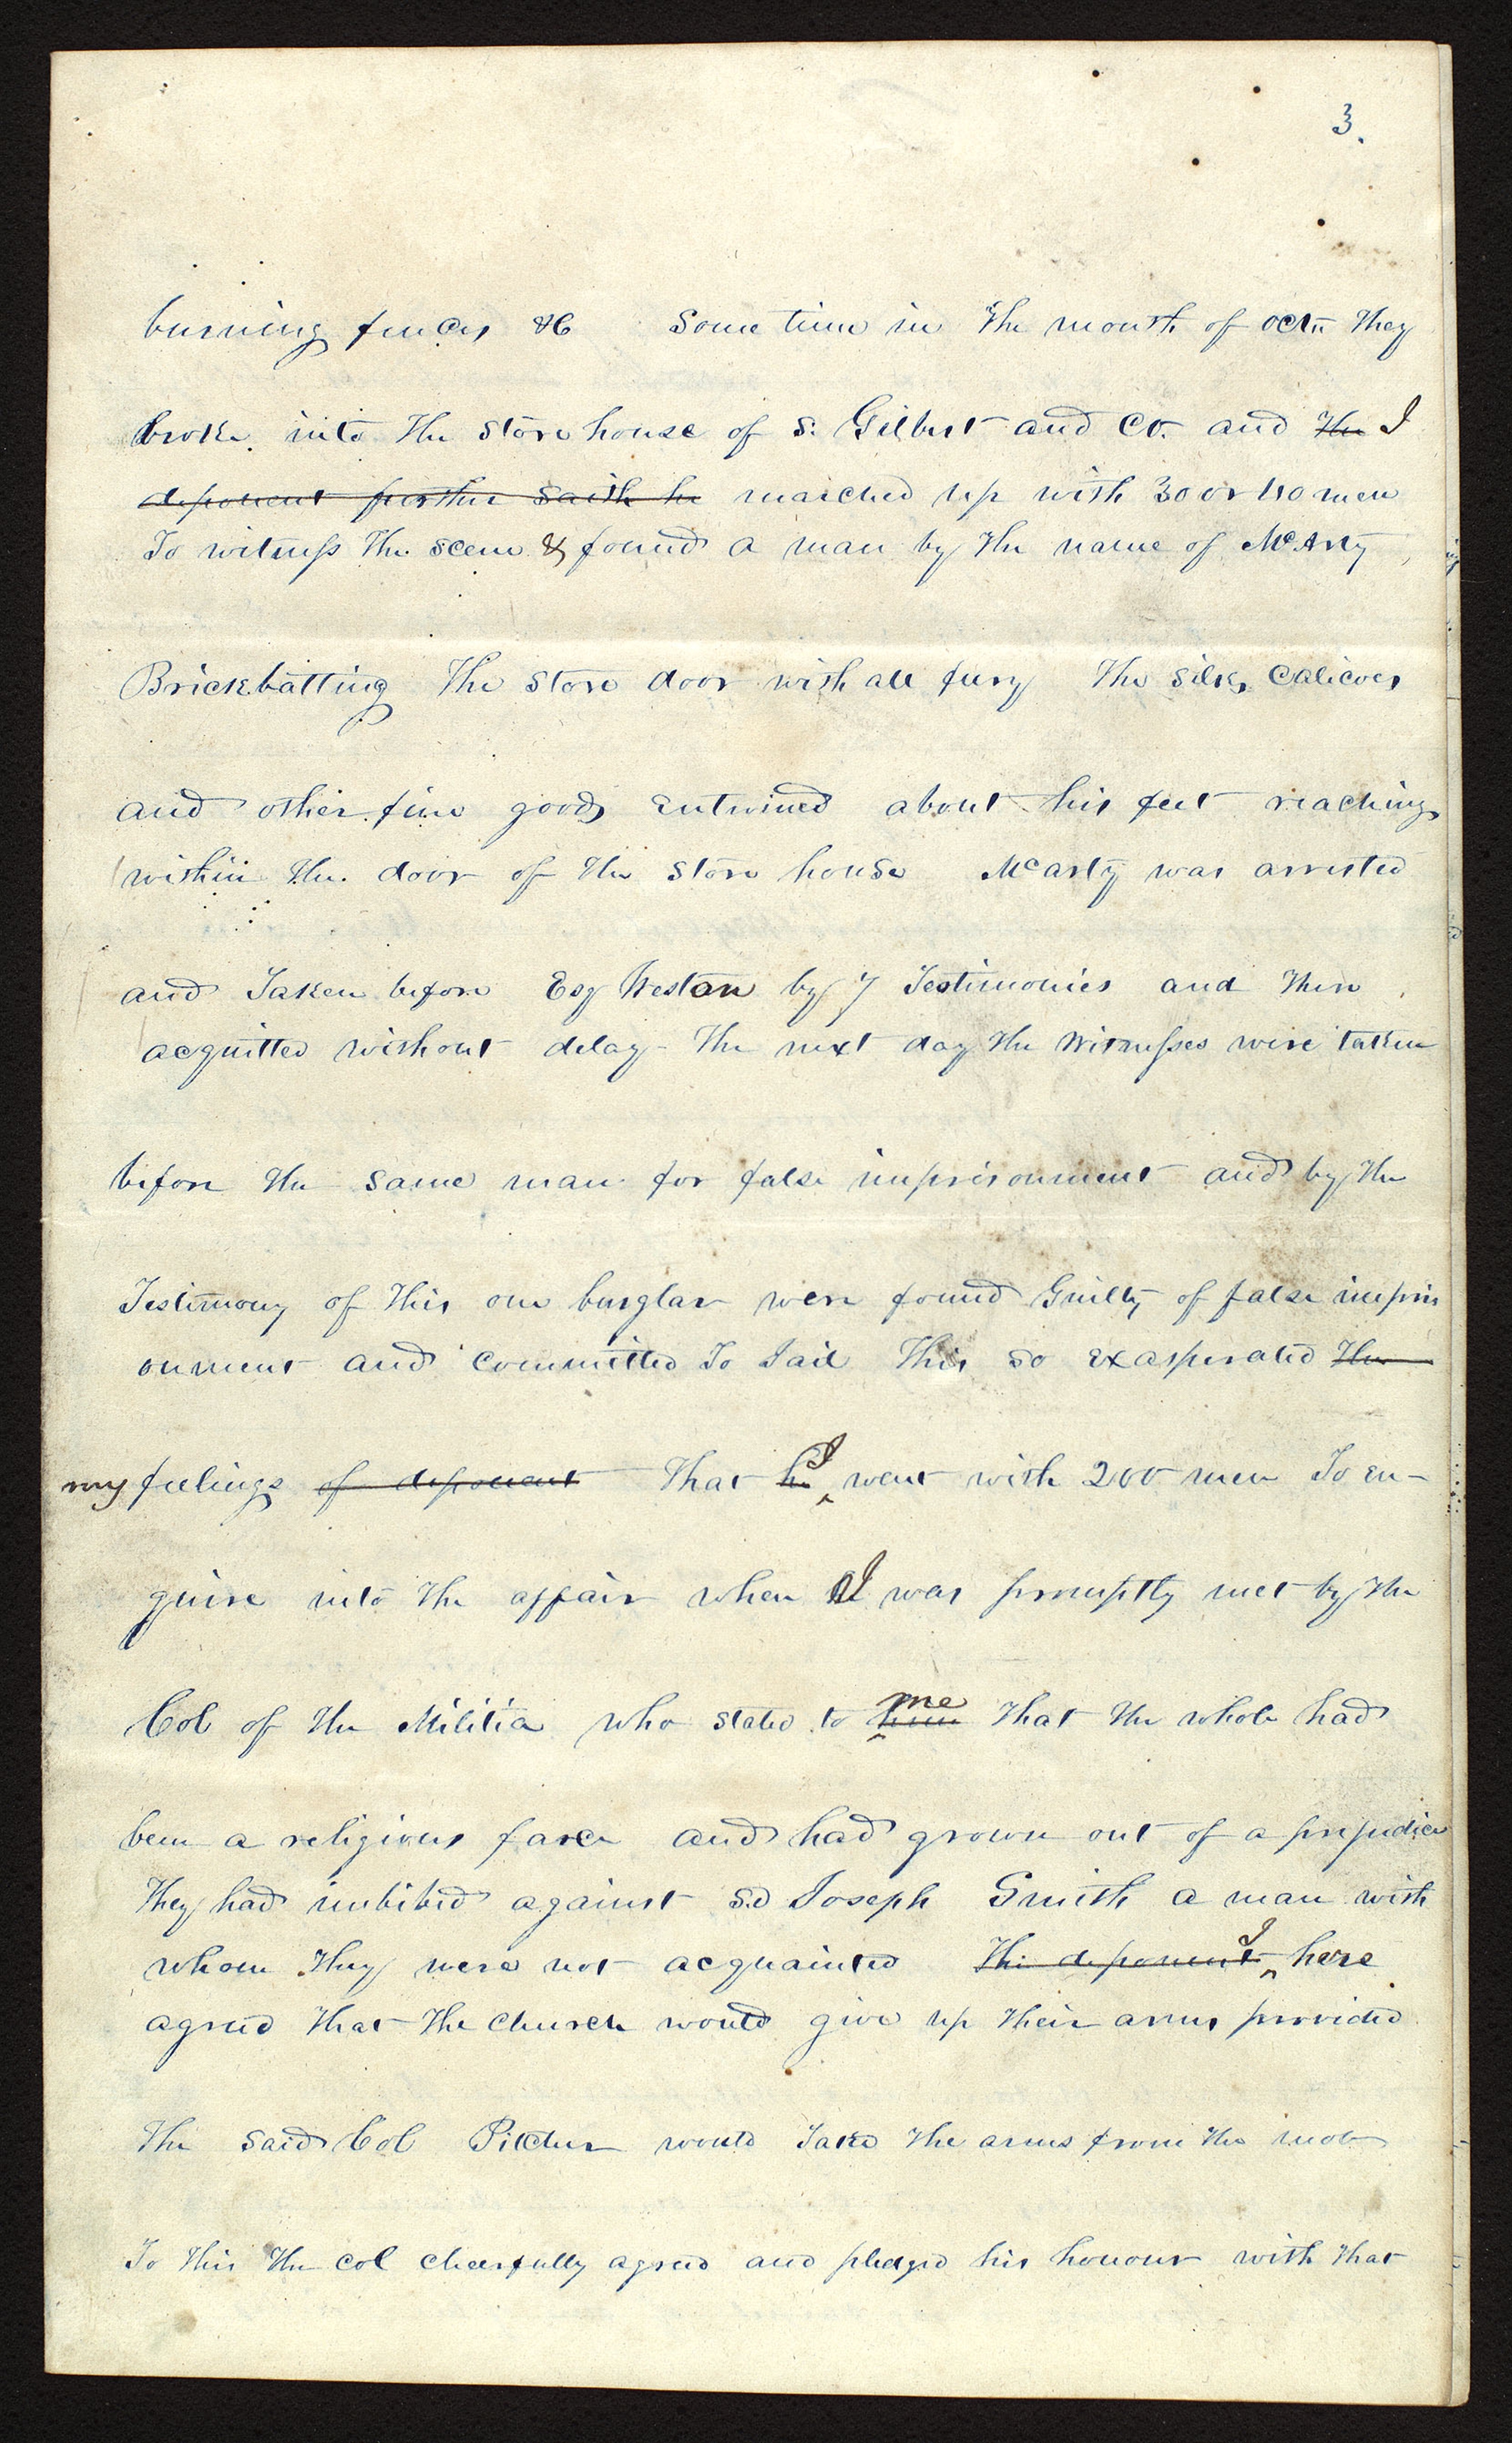 3.
burning fences &c Some time in the month of Oct. they
broke into the store house of S. Gilbert and Co. and the I
deponent further saith he marched up with 30 or 40 men
To witness the scene & found a man by the name of McArty
Brickbatting the store door with all fury the silks calicoes
and other fine goods entwined about his feet reaching
within the door of the store house McArty was arrested
and Taken before Esq Weston by 7 Testimonies and then
acquitted without delay The next day the witnesses were taken
before the same man for false imprisonment and by the
Testimony of this one burglar were found Guilty of false impris
onment and committed To Jail This so exasperated the
my feelings of deponent that he I went with 200 men To en-
quire into the affair when I was promptly met by the
Col of the Militia who stated to him me that the whole had
been a religious farce and had grown out of a prejudice
they had imbibed against sd Joseph Smith a man with
whom they were not acquainted The deponent I here
agreed that the church would give up their arms provided
the said Col Pitcher would Take the arms from the mob
To this the col cheerfully agreed and pledged his honour with that